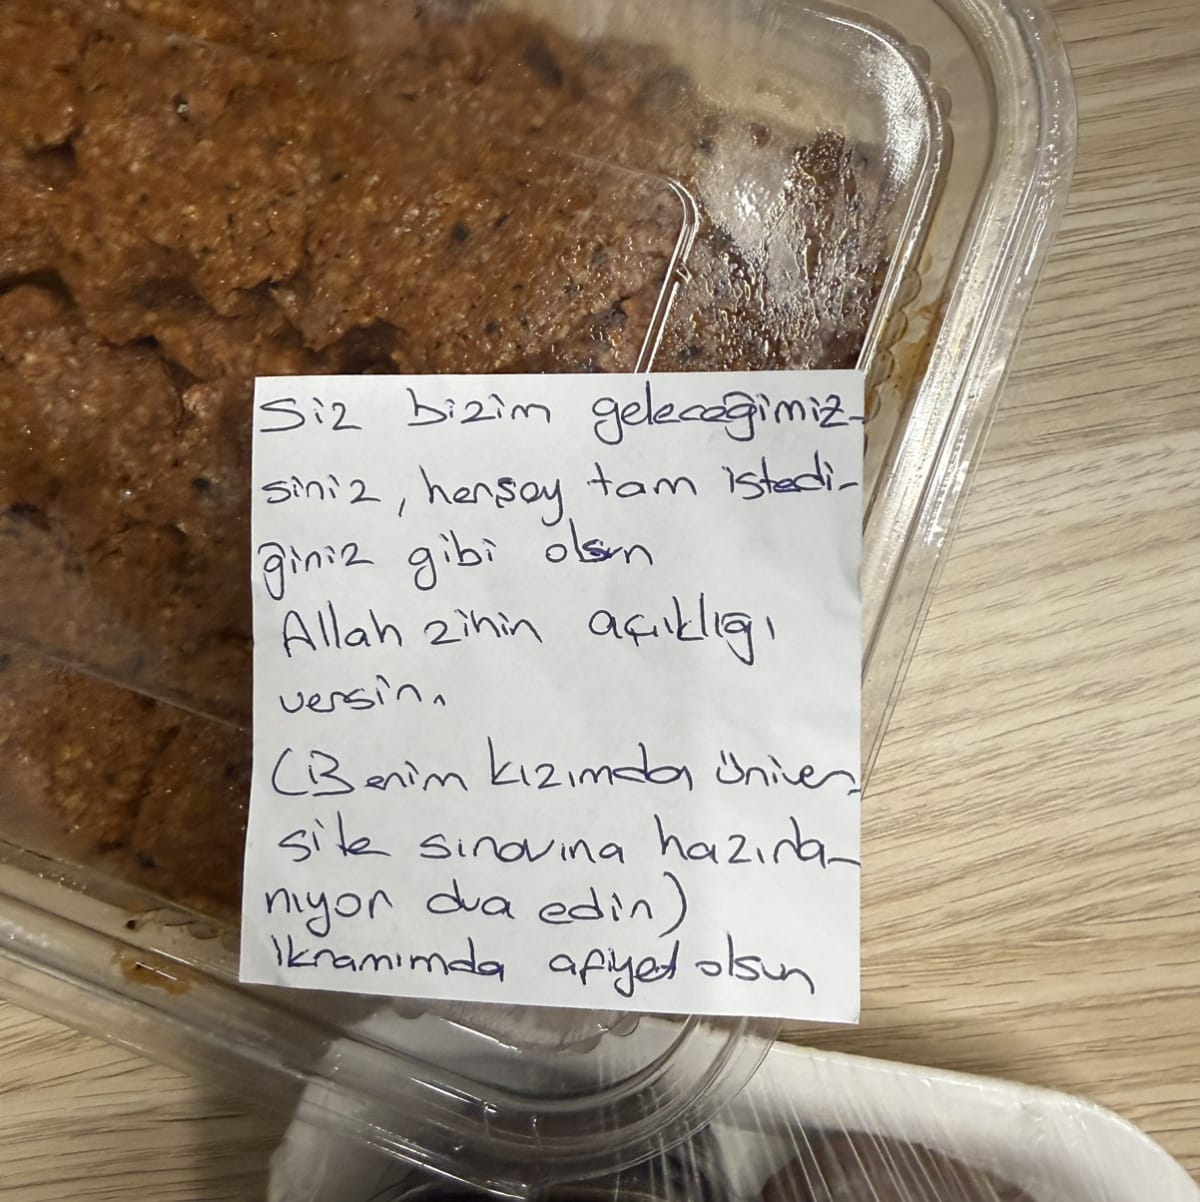 Siz bizim geleceğimiz-
siniz, herşey tam istedi-
ğiniz gibi olsun
Allah zihin açıklığı
versin.
(Benim kızımda üniver-
site sınavına hazırla-
nıyor dua edin)
ikramımda afiyet olsun